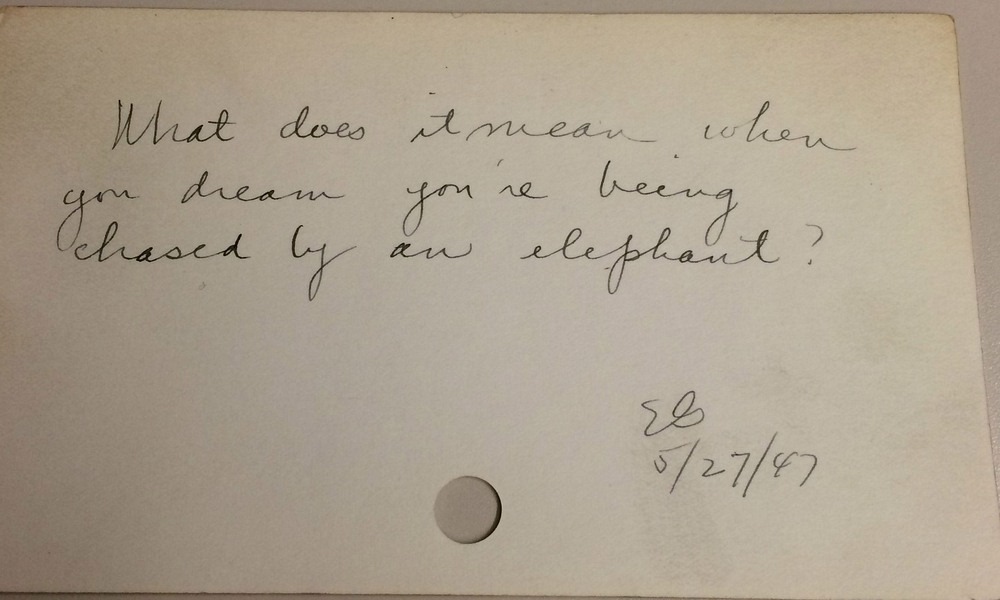 What does it mean when
you dream you're being
chased by an elephant?
5/27/47